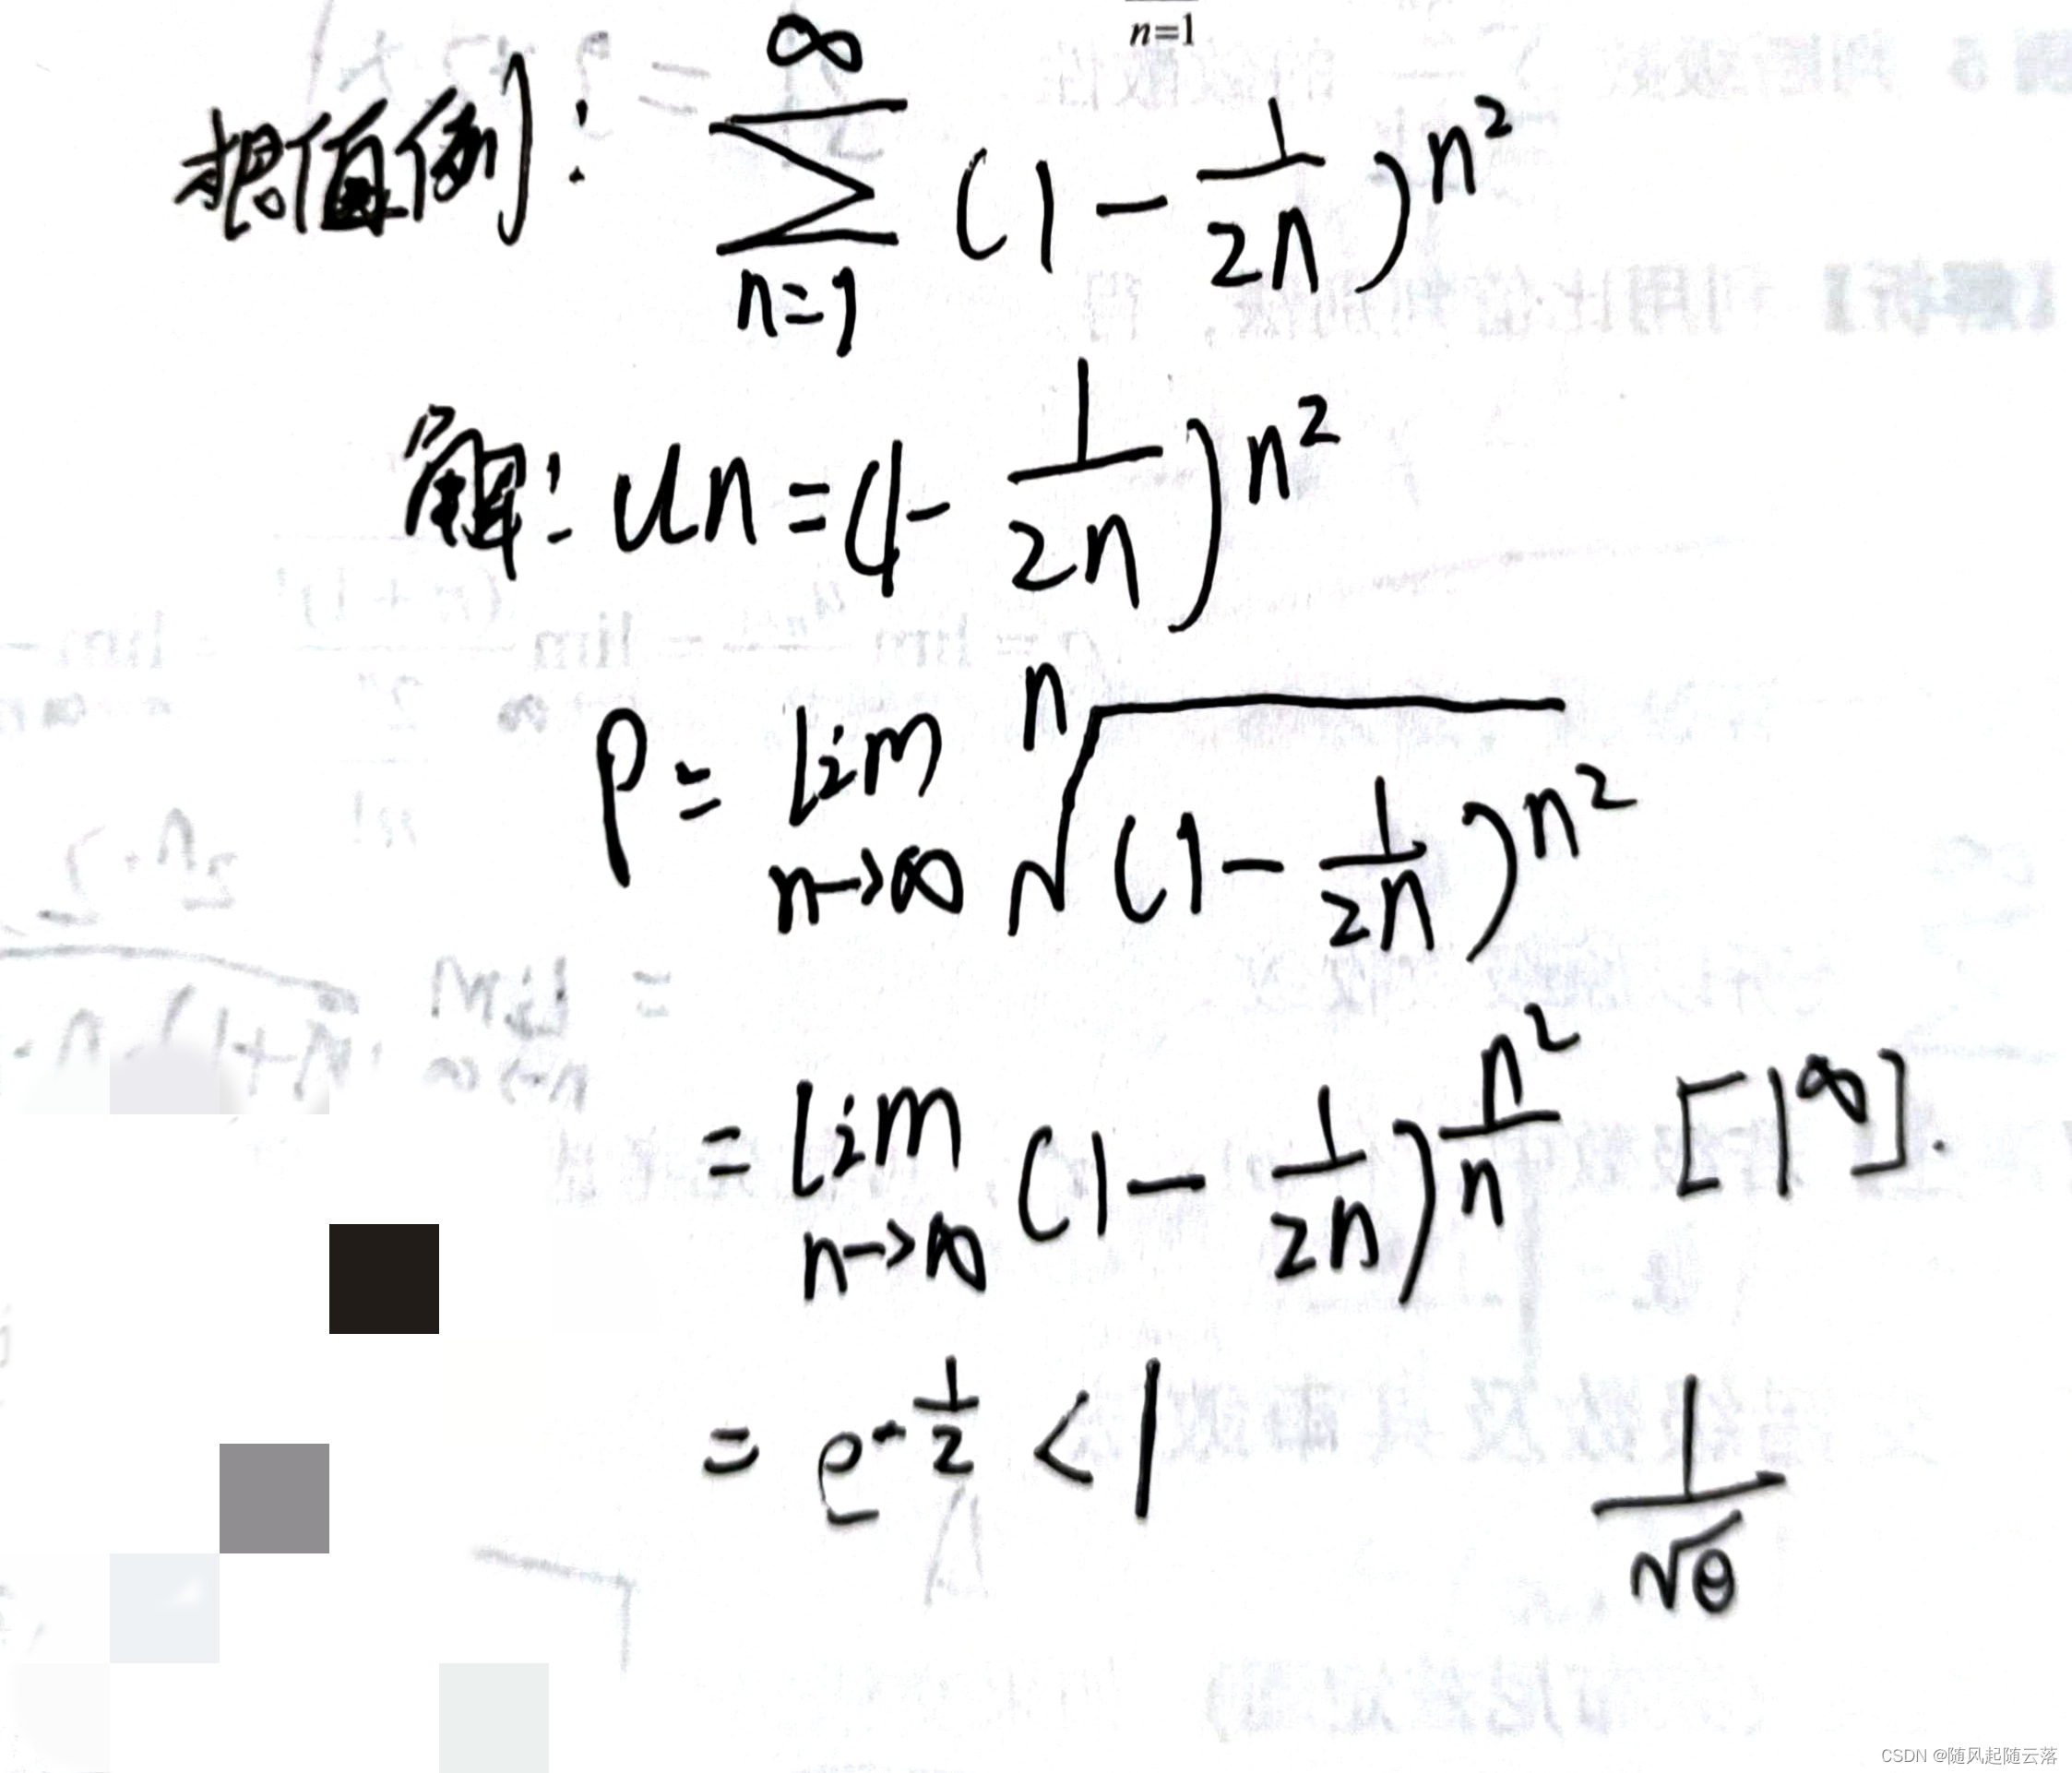 n=1
根值例: ∑_{n=1}^{∞} (1 - \frac{1}{2n})^{n^2}
解: un = (1 - \frac{1}{2n})^{n^2}
ρ = lim_{n→∞} \sqrt[n]{(1 - \frac{1}{2n})^{n^2}}
= lim_{n→∞} (1 - \frac{1}{2n})^{\frac{n^2}{n}} [1^∞].
= e^{-\frac{1}{2}} < 1
\frac{1}{\sqrt{e}}
CSDN @随风起随云落